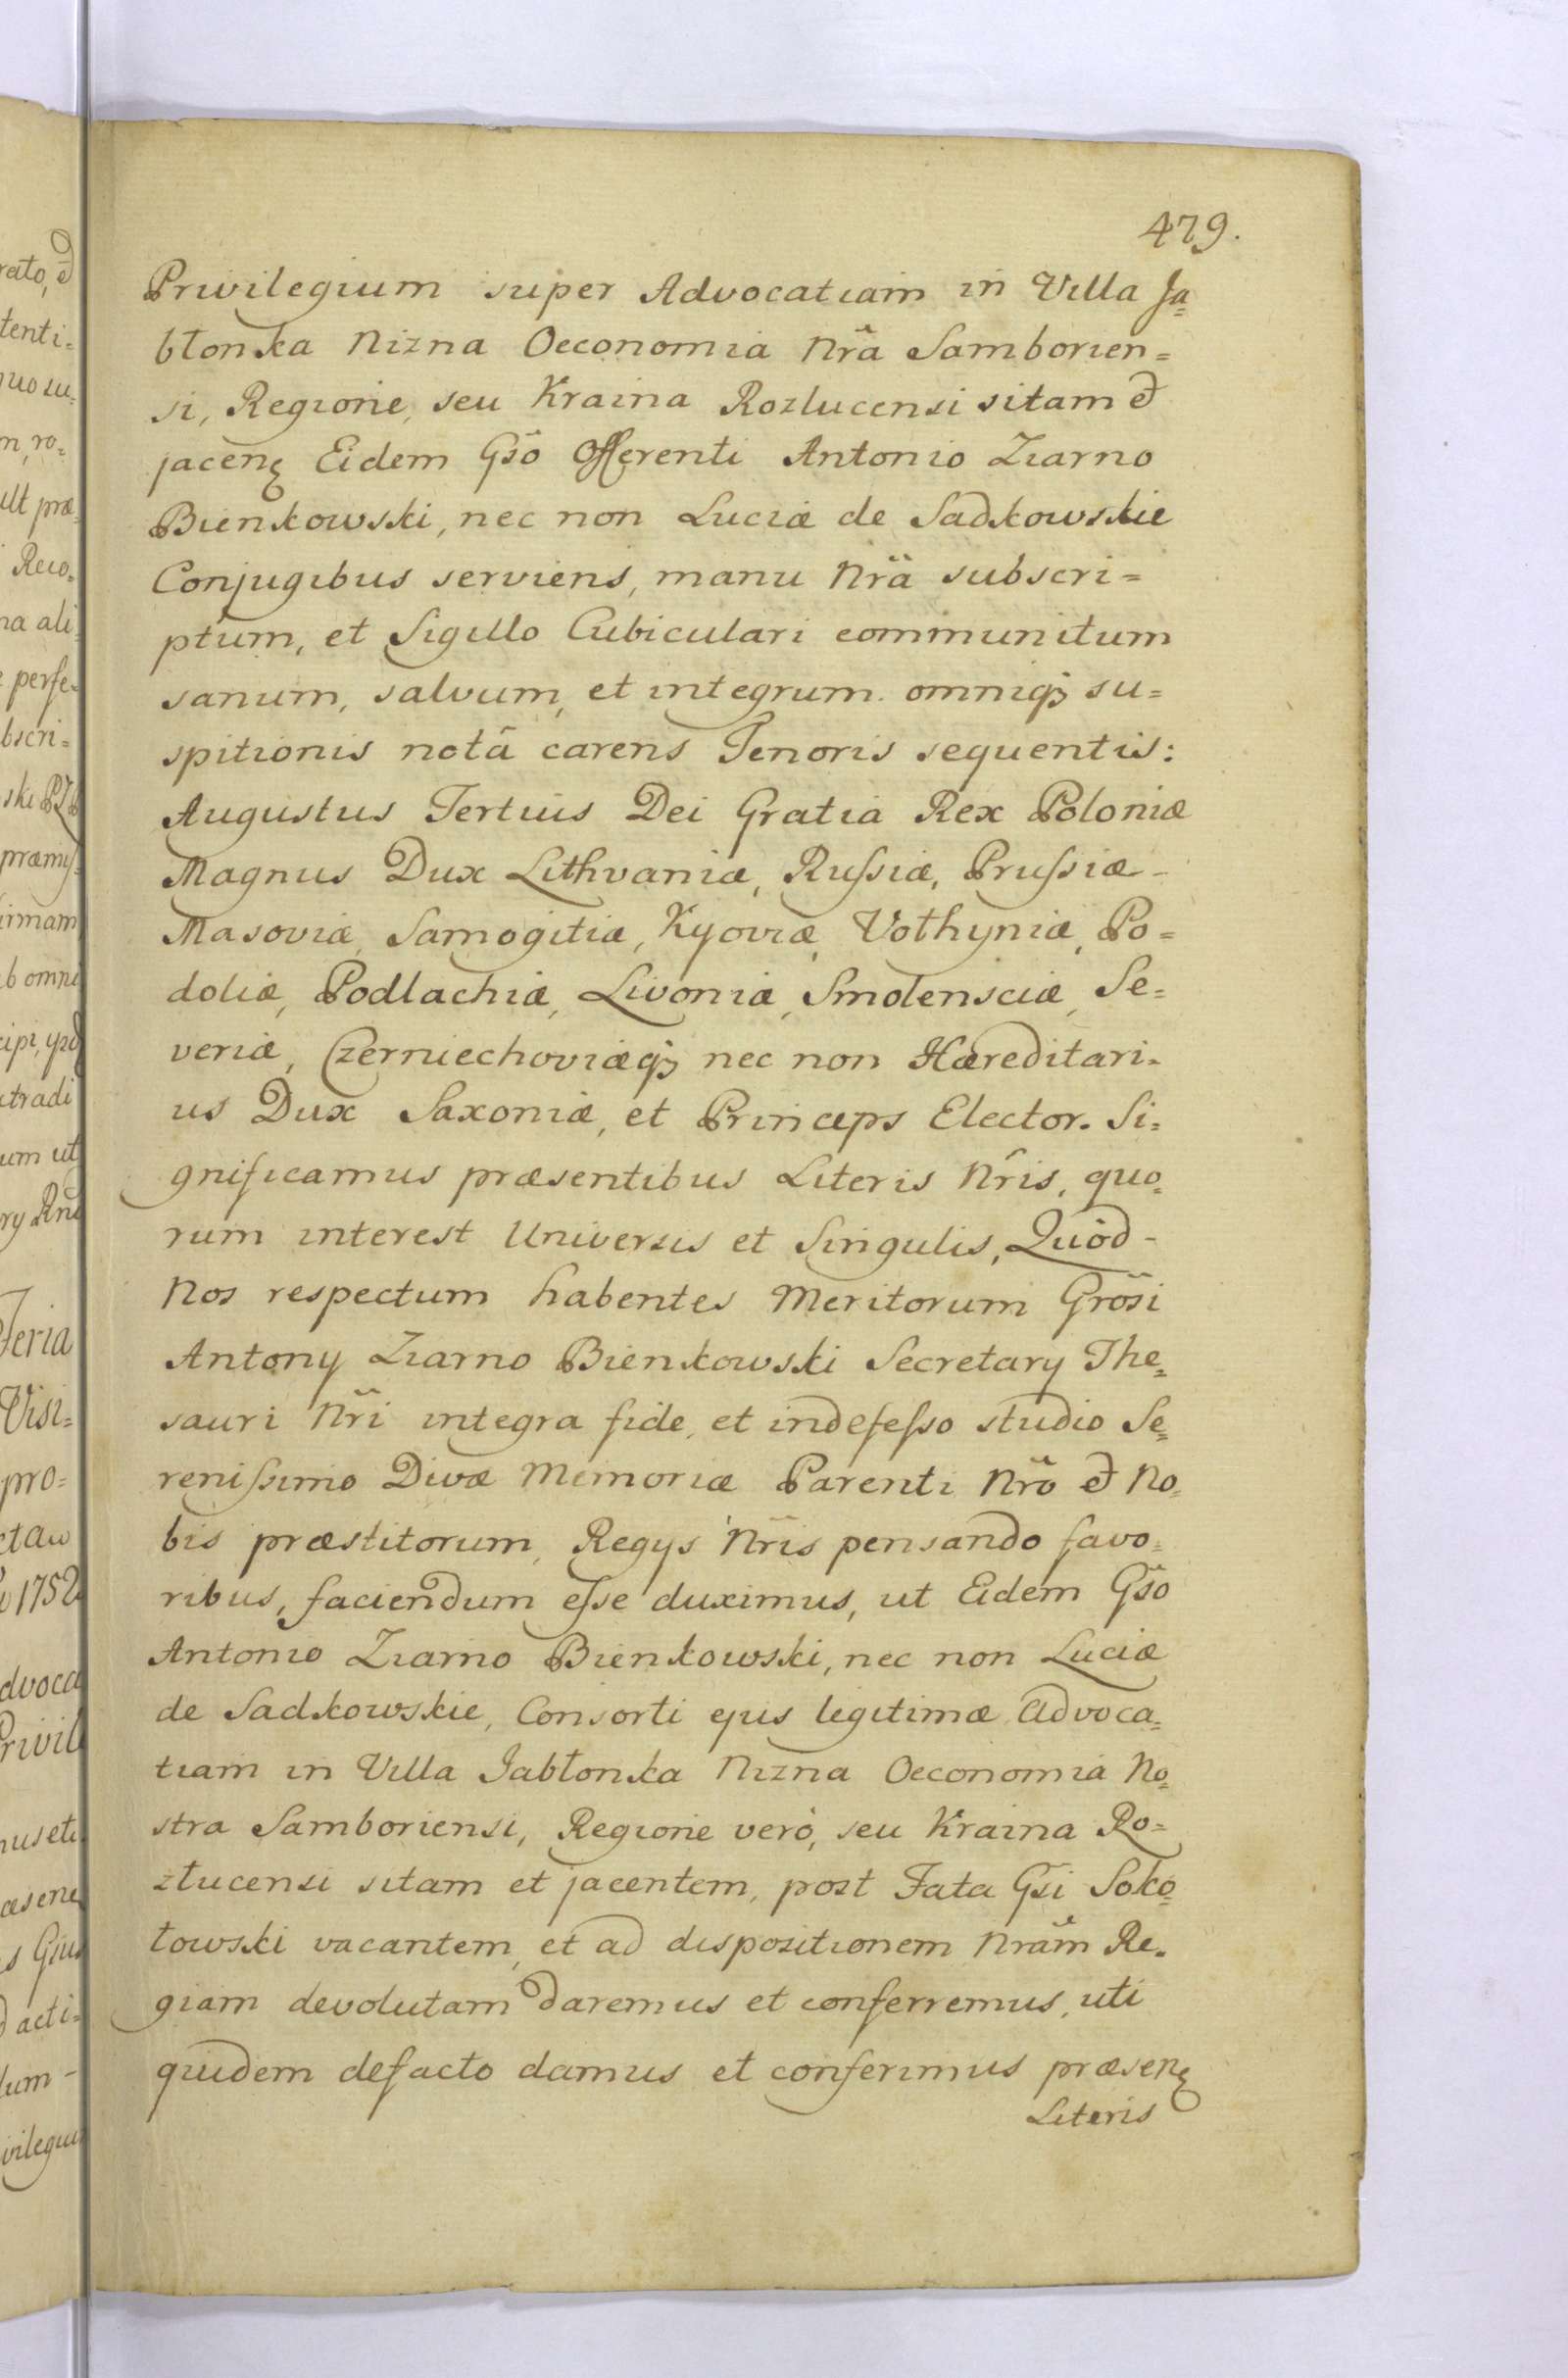 479.
Privilegium super Advocatiam in Villa Ja=
błonka Nizna Oeconomia Nr̃a Samborien=
si, Regione, seu Kraina Rozlucensi sitam et
jacenę Eidem Gs̃o Offerenti Antonio Ziarno
Bienkowski, nec non Luciæ de Sadkowskie
Conjugibus serviens, manu Nr̃a subscri=
ptum, et Sigillo Cubiculari communitum
sanum, salvum, et integrum. omniq3 su=
spitionis notâ carens Tenoris sequentis:
Augustus Tertius Dei Gratia Rex Poloniæ
Magnus Dux Lithvaniæ, Rufsiæ, Prufsiæ -
Masoviæ, Samogitiæ, Kyoviæ, Vołhyniæ, Po=
doliæ, Podlachiæ, Livoniæ, Smolensciæ, Se=
veriæ, Czerniechoviæq3 nec non Hæreditari=
us Dux Saxoniæ, et Princeps Elector. Si=
gnificamus præsentibus Literis Nr̃is, quo=
rum interest Universis et Singulis, Quòd -
Nos respectum habentes Meritorum Grõsi
Antony Ziarno Bienkowski Secretary The=
sauri Nr̃i integra fide, et indefefso studio Se=
renifsimo Divæ Memoriæ Parenti Nr̃o et No=
bis præstitorum, Regys Nr̃is pensando favo=
ribus, faciendum efse duximus, ut Eidem Gs̃o
Antonio Ziarno Bienkowski, nec non Luciæ
de Sadkowskie, Consorti ejus legitimæ Advoca=
tiam in Villa Jabłonka Nizna Oeconomia No=
stra Samboriensi, Regione verò, seu Kraina Ro=
złucensi sitam et jacentem, post Fata Gs̃i Soko=
łowski vacantem, et ad dispositionem Nr̃am Re=
giam devolutam daremus et conferremus, uti
quidem defacto damus et conferimus præsenę
Literis